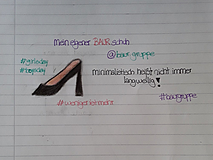 mein eigener BAUR schuh
@baur.gruppe
#girlsday
#boysday
minimalistisch heißt nicht immer
langweilig!
#baurgruppe